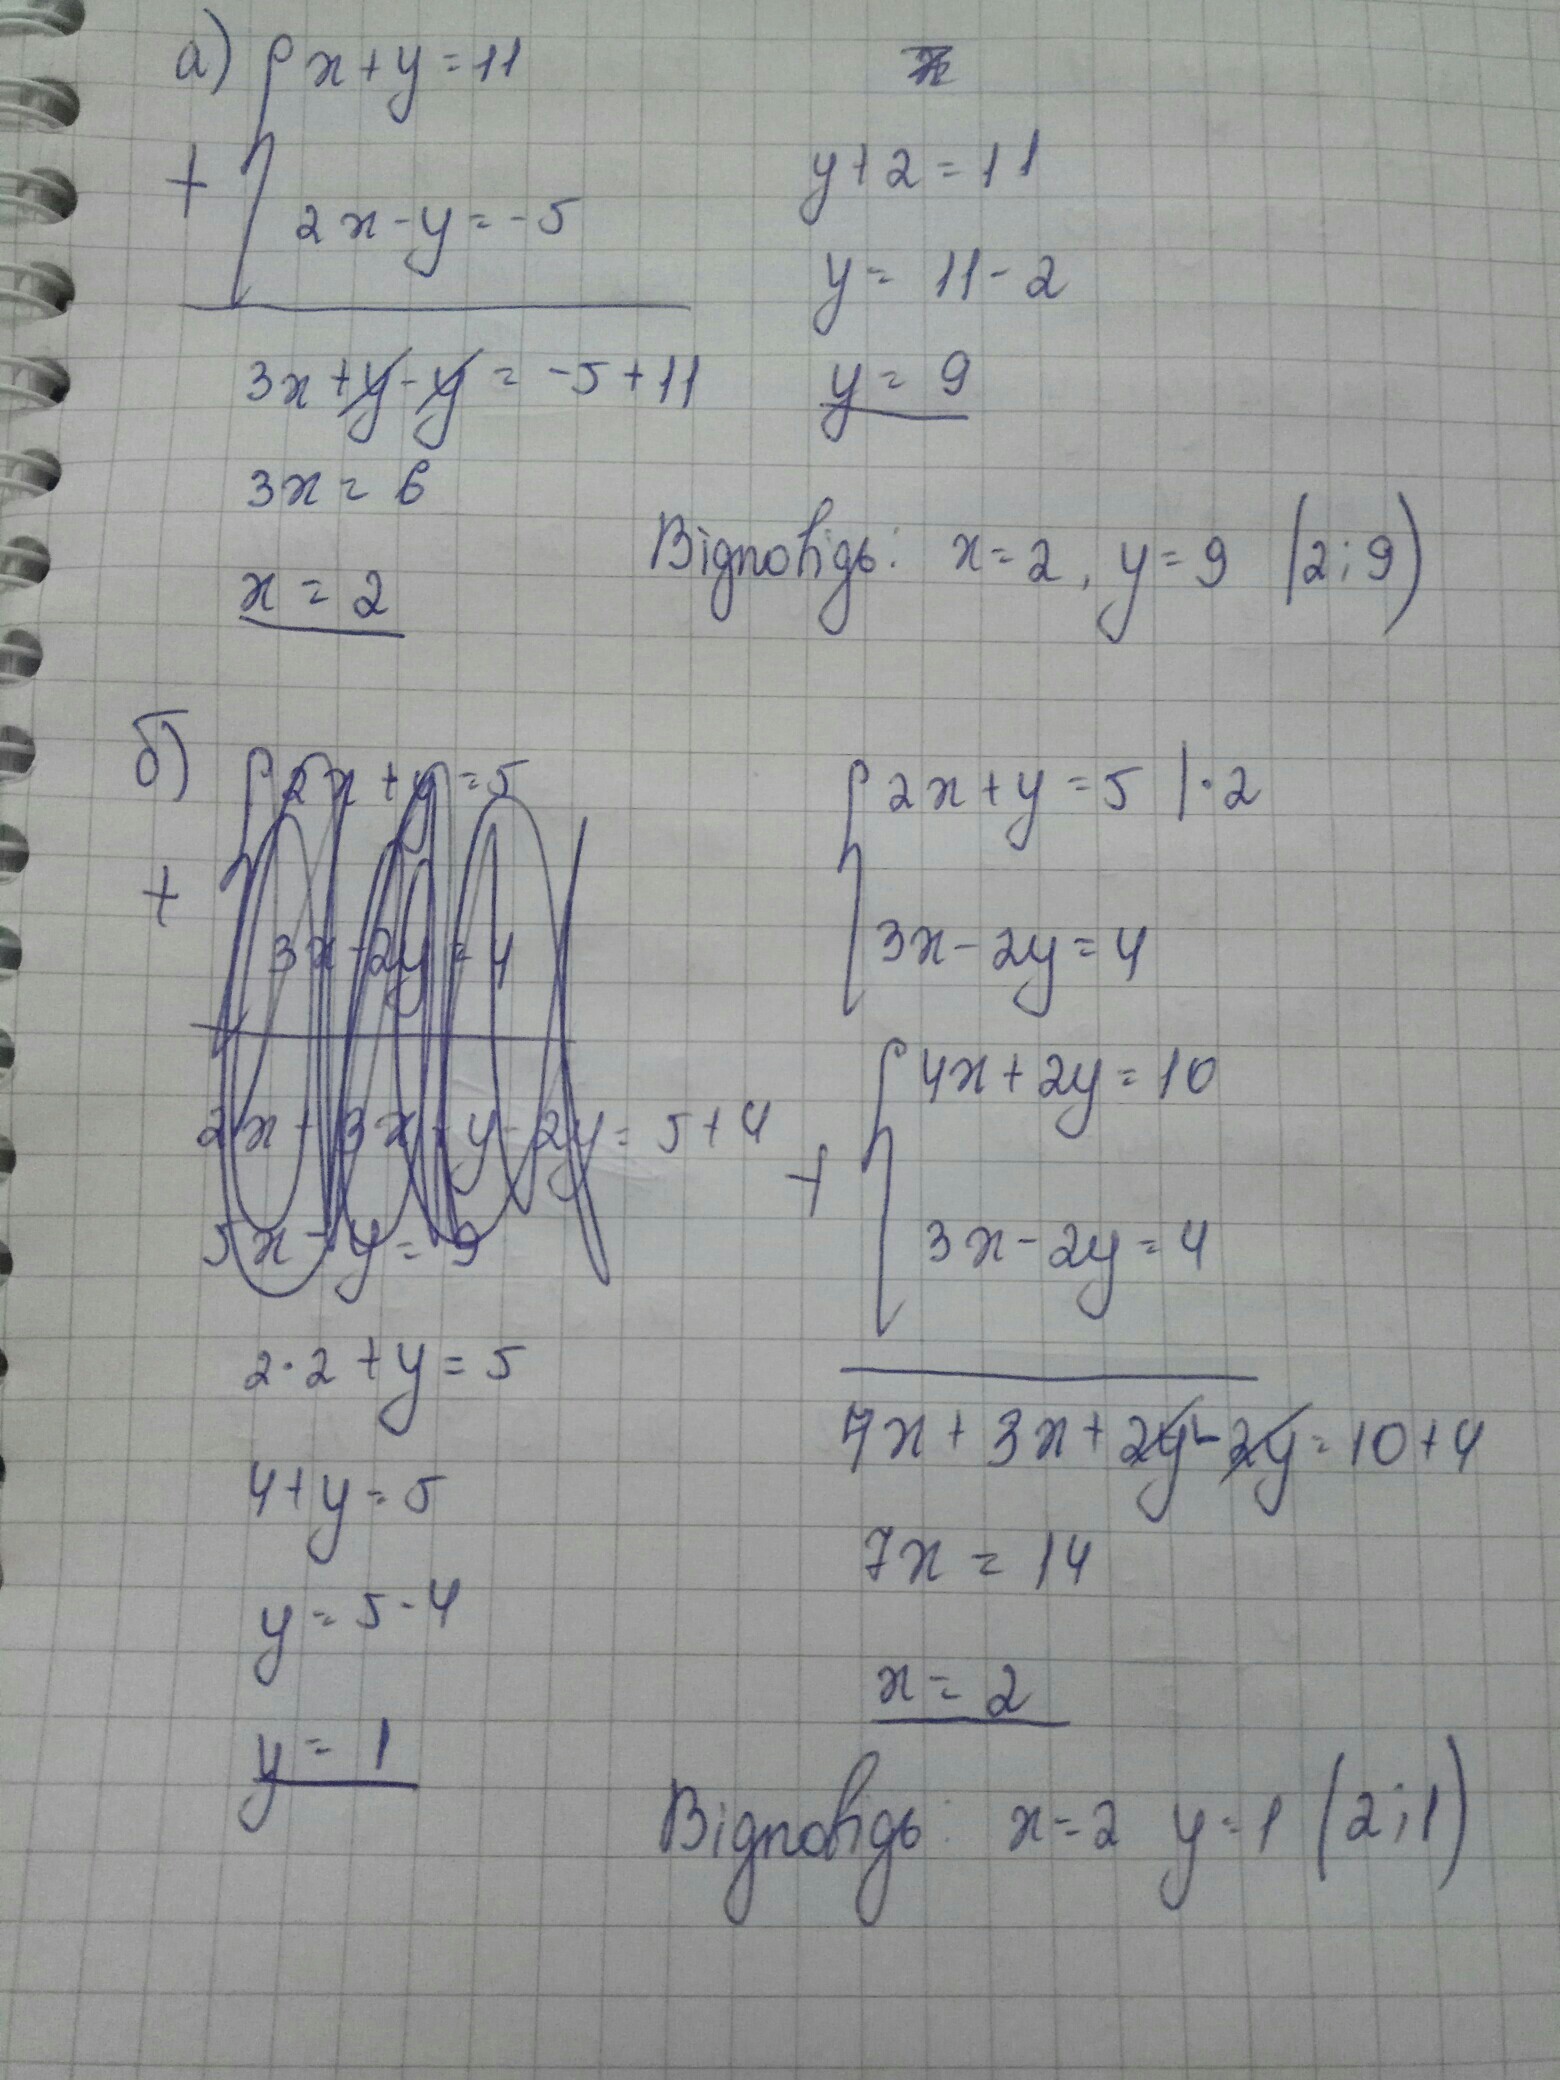 а) { x + y = 11
+ 2x - y = -5
3x + y - y = -5 + 11
3x = 6
x = 2
y + 2 = 11
y = 11 - 2
y = 9
Відповідь: x = 2, y = 9 (2; 9)
б) { 2x + y = 5
+ 3x - 2y = 4
2x + 3x + y - 2y = 5 + 4
5x - y = 9
2·2 + y = 5
4 + y = 5
y = 5 - 4
y = 1
{ 2x + y = 5 | · 2
3x - 2y = 4
+ { 4x + 2y = 10
3x - 2y = 4
7x + 3x + 2y - 2y = 10 + 4
7x = 14
x = 2
Відповідь: x = 2 y = 1 (2; 1)